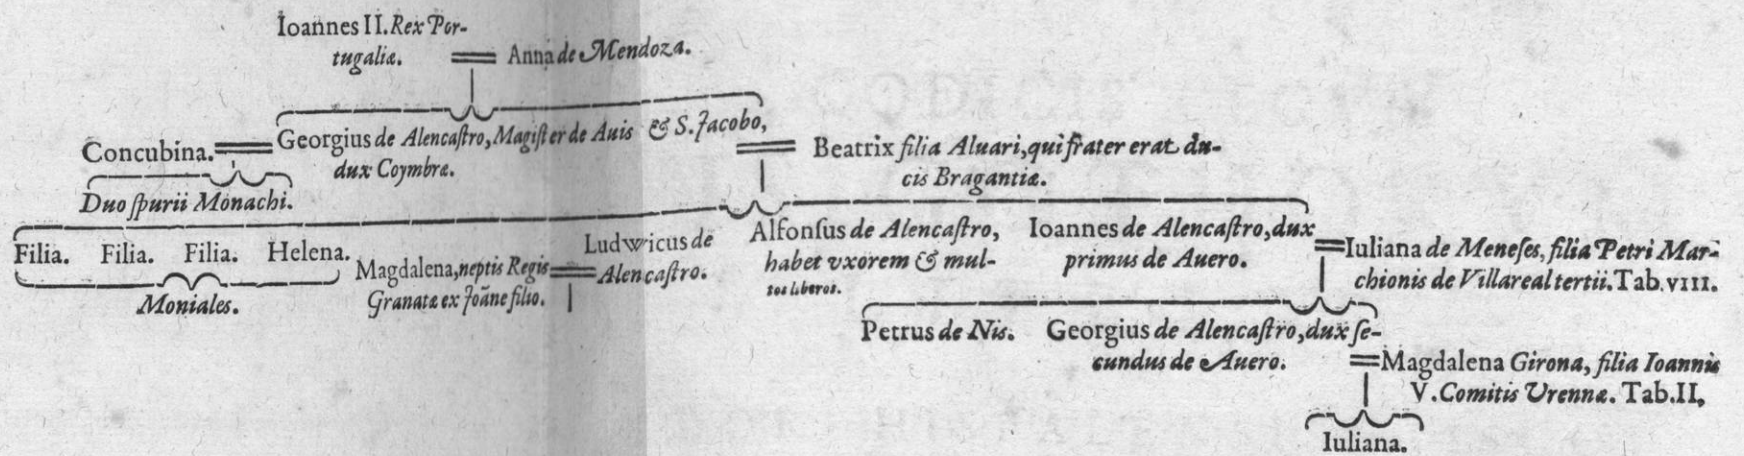 Ioannes II. Rex Por-
tugaliæ.
Anna de Mendoza.
Concubina.
Georgius de Alencaſtro, Magiſter de Auis & S. Jacobo,
dux Coymbræ.
Beatrix filia Aluari, qui frater erat du-
cis Bragantiæ.
Duo ſpurii Monachi.
Filia. Filia. Filia. Helena.
Moniales.
Magdalena, neptis Regis
Granatæ ex Joãne filio.
Ludwicus de
Alencaſtro.
Alfonſus de Alencaſtro,
habet vxorem & mul-
tos liberos.
Ioannes de Alencaſtro, dux
primus de Auero.
Iuliana de Meneſes, filia Petri Mar-
chionis de Villareal tertii. Tab. VIII.
Petrus de Nis.
Georgius de Alencaſtro, dux ſe-
cundus de Auero.
Magdalena Girona, filia Ioannis
V. Comitis Vrennæ. Tab. II,
Iuliana.